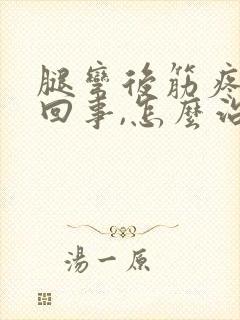 腿彎後筋疼
回事,怎麼
湯一原